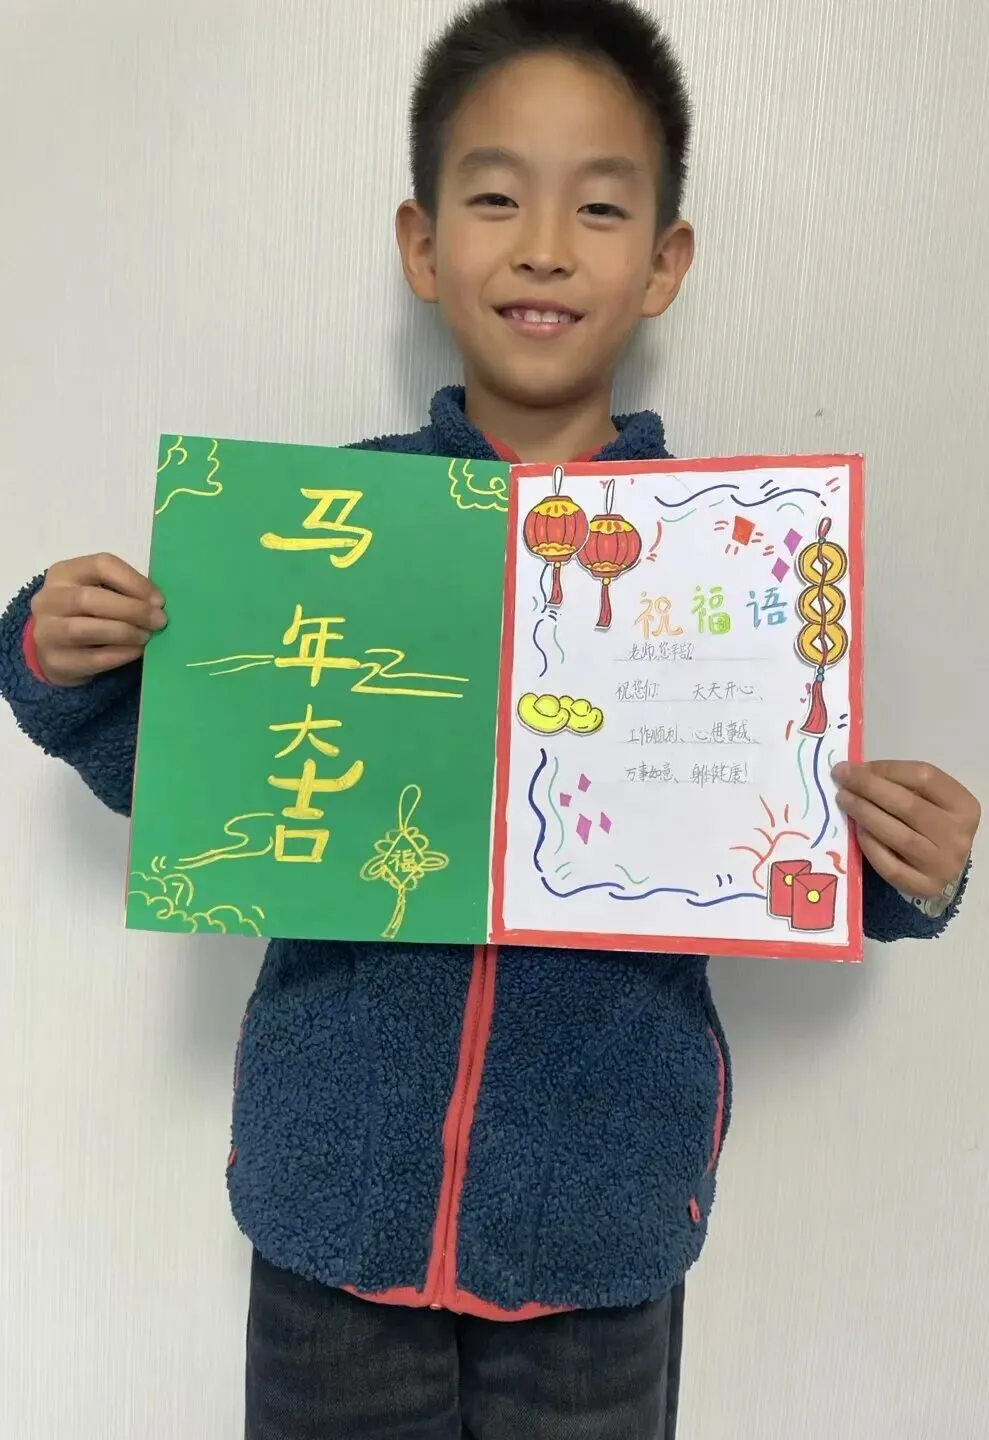 马
年
大
吉
福
祝福语
老师您辛苦
祝您们 天天开心、
工作顺利、心想事成、
万事如意、身体健康!